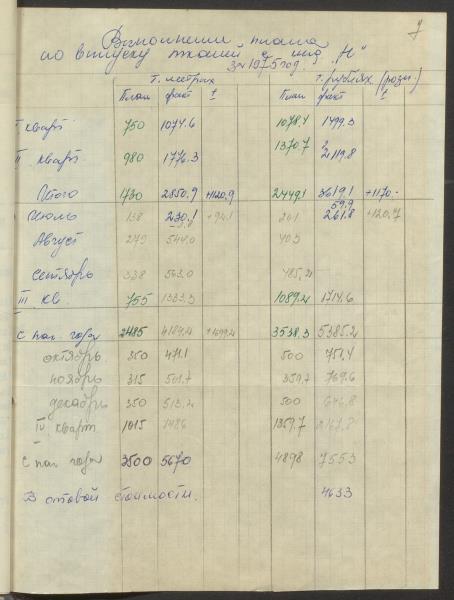 7
Выполнение плана
по выпуску тканей с инд „Н"
за 1975 год.
т. метрах т. рублях (розн.)
План факт ± План факт ±
I кварт 750 1074.6 1078.4 1499.3
II кварт. 980 1776.3 1370.7 2119.8
Итого 1730 2850.9 +1120,9 2449,1 3619.1 +1170.-
59,9
Июль 138 230.1 +92.1 261.8 +120,7
Август 279 544.0 405
Сентябрь 338 563.0 485,2
III кв. 755 1333.3 1089.2 1714.6
С нач. года 2485 4184.2 +1699.2 3538.3 5385.2
октябрь 350 471.1 500 751,4
ноябрь 315 501.7 359,7 769.6
декабрь 350 513,2 500 646,8
IV кварт 1015 1486 1359.7 2167,8
С нач. года 3500 5670 4898 7553
В оптовой стоимости. 4633